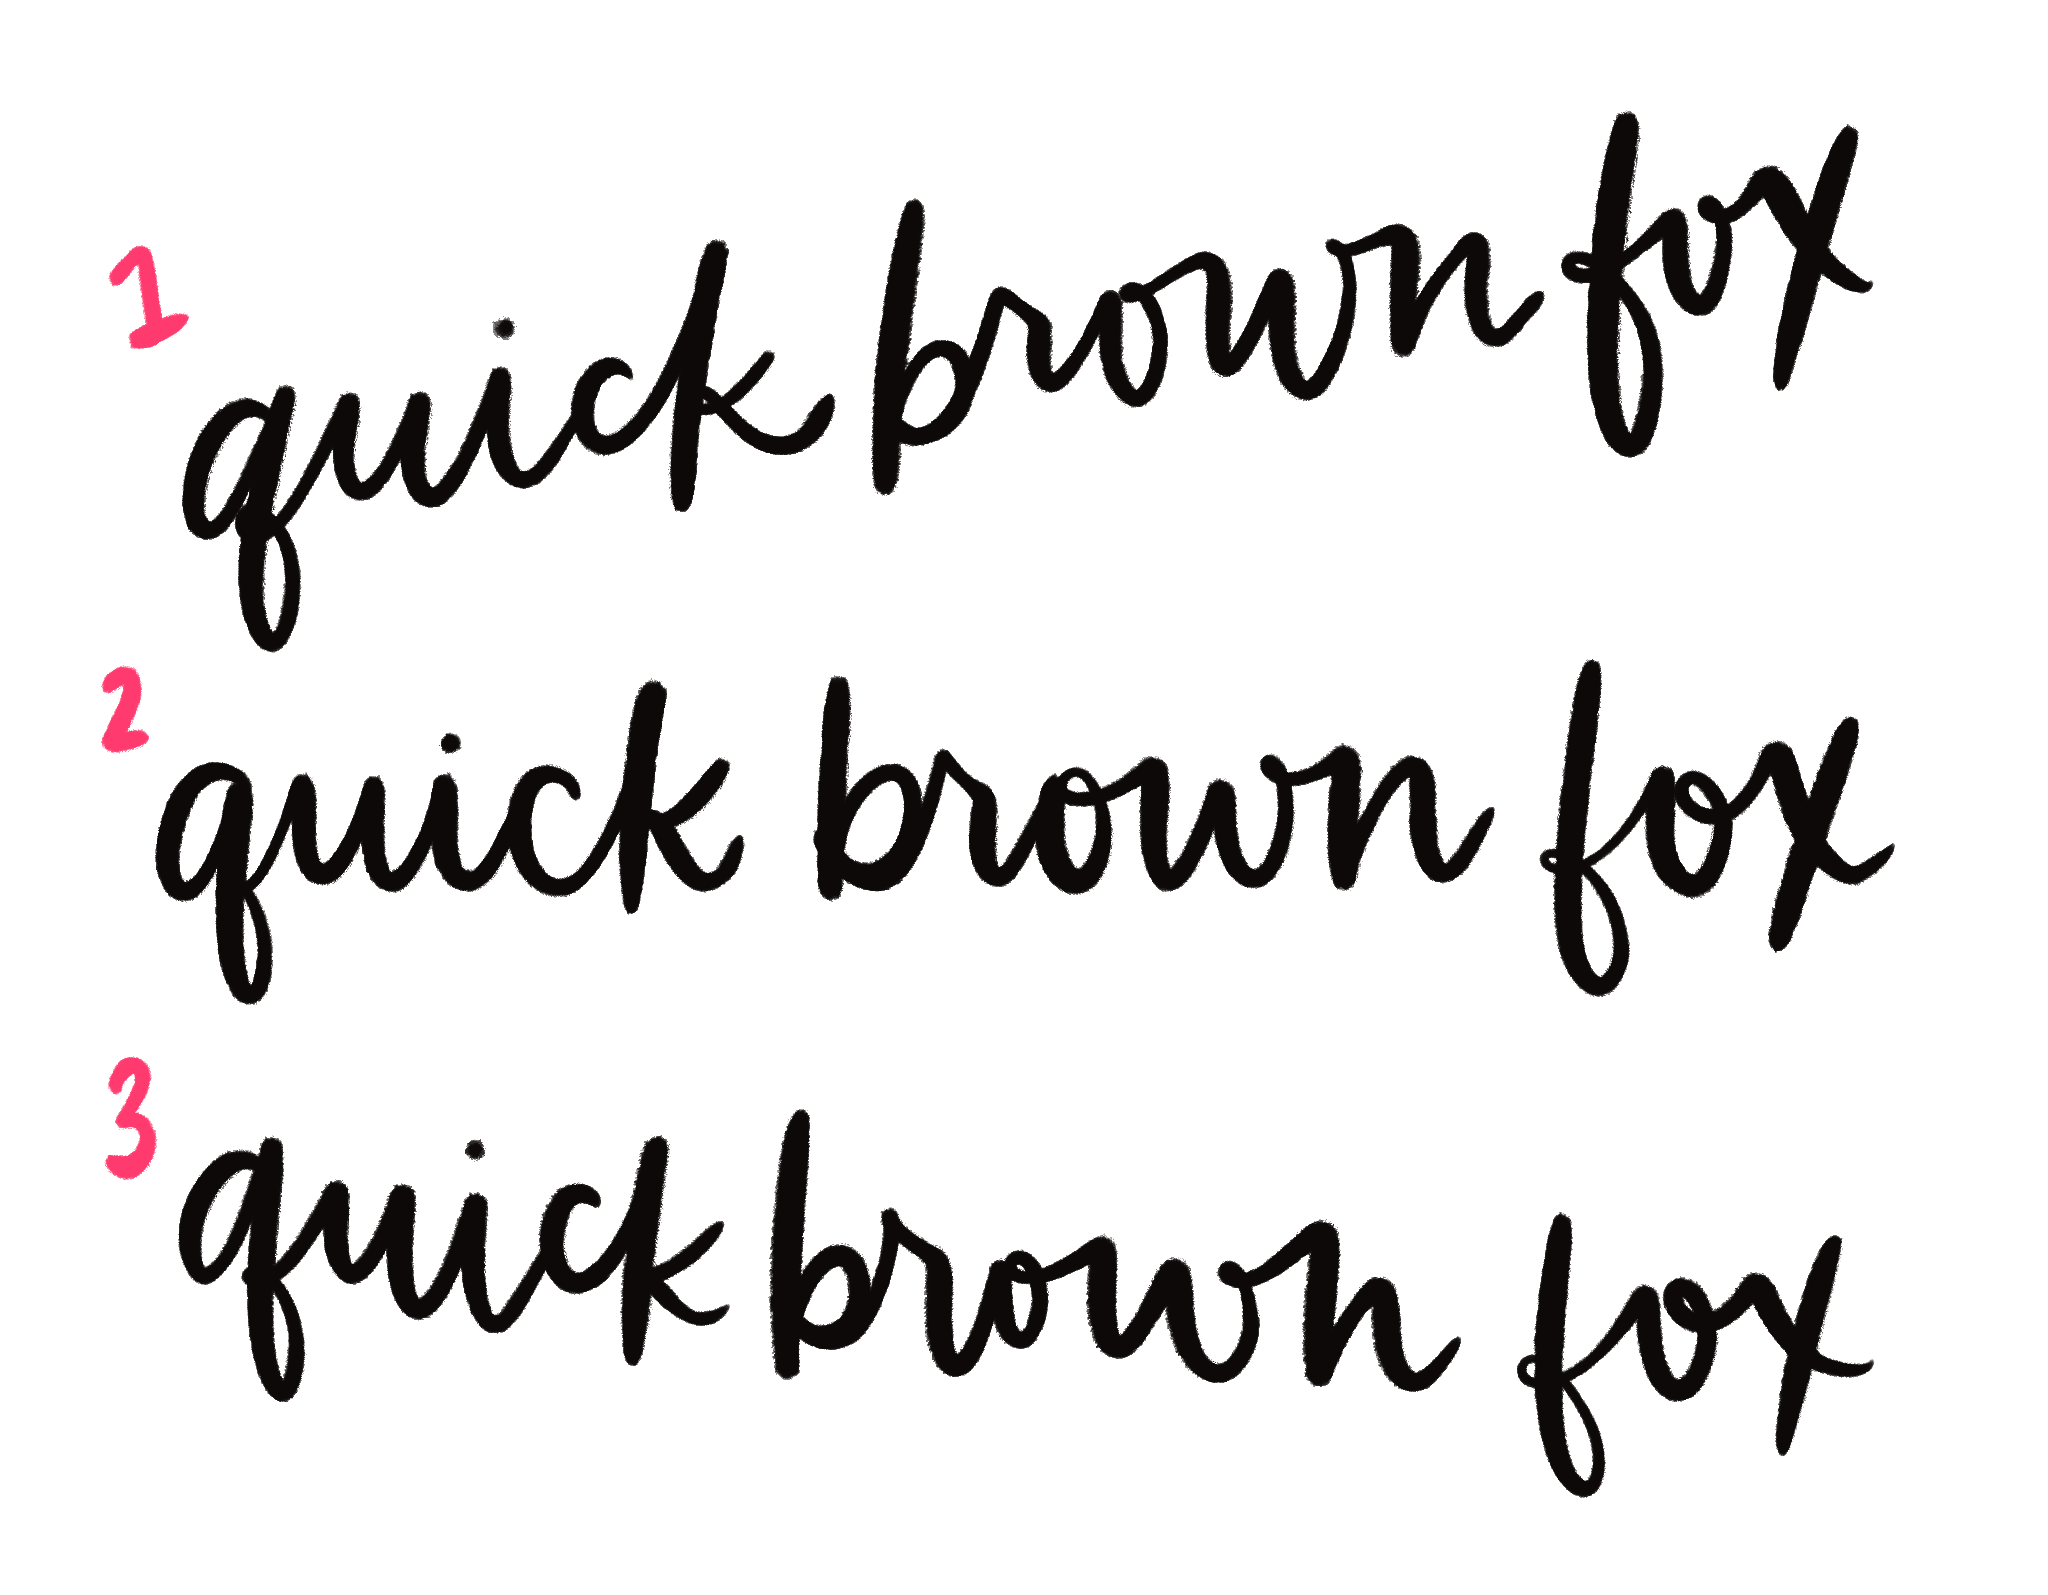 1 quick brown fox
2 quick brown fox
3 quick brown fox